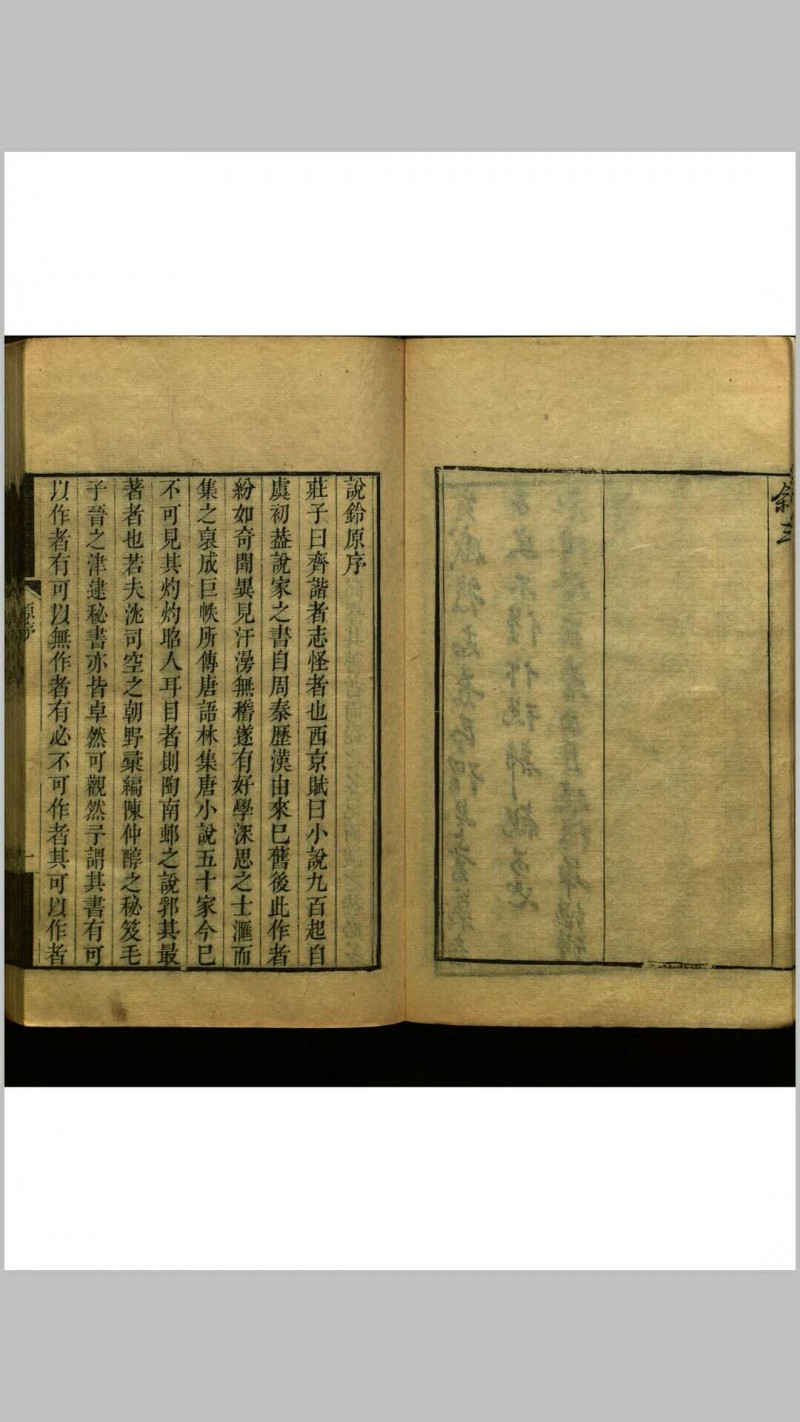 敘三
說鈴原序
莊子曰齊諧者志怪者也西京賦曰小說九百起自
虞初葢說家之書自周秦歷漢由來已舊後此作者
紛如奇聞異見汗漫無稽遂有好學深思之士滙而
集之裒成巨帙所傳唐語林集唐小說五十家今已
不可見其灼灼㷖人耳目者則陶南邨之說郛其最
著者也若夫洮司空之朝野彚編陳仲醇之秘笈毛
子晉之津逮秘書亦皆卓然可觀然予謂其書有可
以作者有可以無作者有必不可作者其可以作者
原序
一